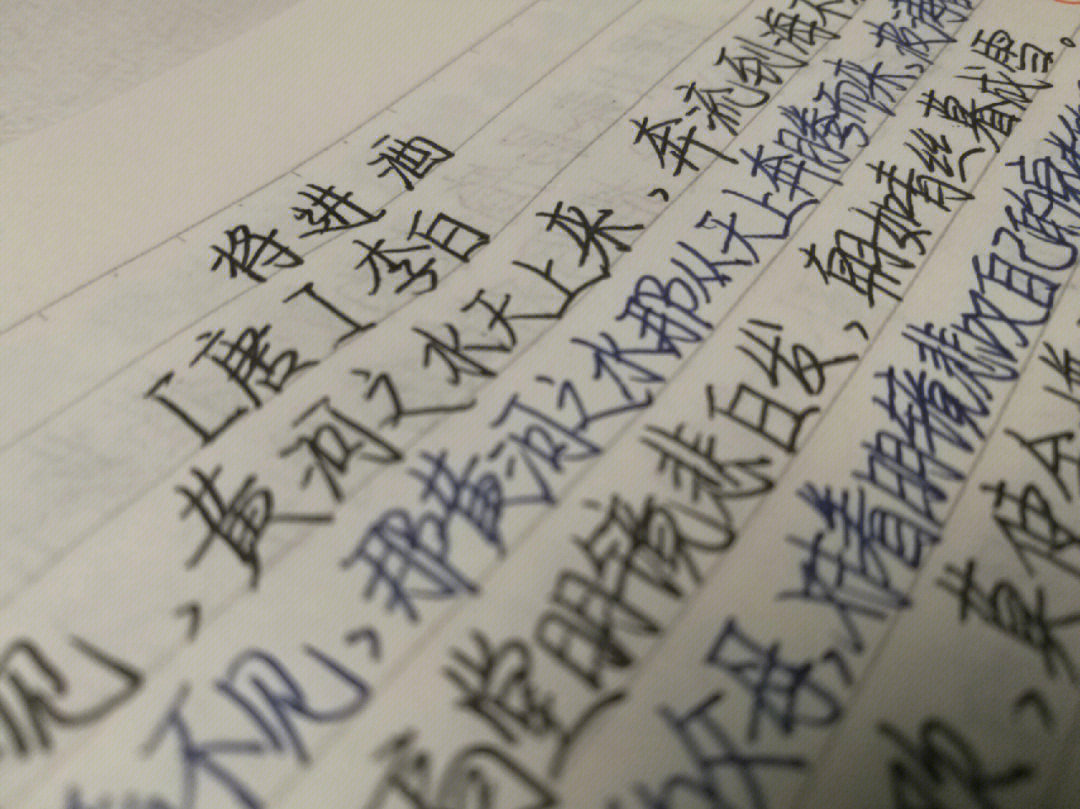 将进酒
[唐]李白
见,黄河之水天上来,奔流到海不
不见,那黄河之水那从天上奔腾而来,波涛
高堂明镜悲白发,朝如青丝暮成雪。
父母,对着明镜悲叹自己的
欢,莫使金